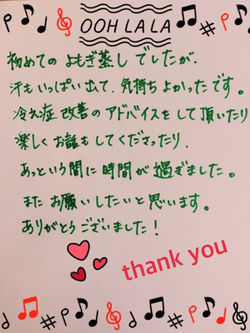 OOH LA LA
初めてのよもぎ蒸しでしたが、
汗もいっぱい出て、気持ちよかったです。
冷え症改善のアドバイスをして頂いたり
楽しくお話もしてくださったり、
あっという間に時間が過ぎました。
またお願いしたいと思います。
ありがとうございました!
thank you